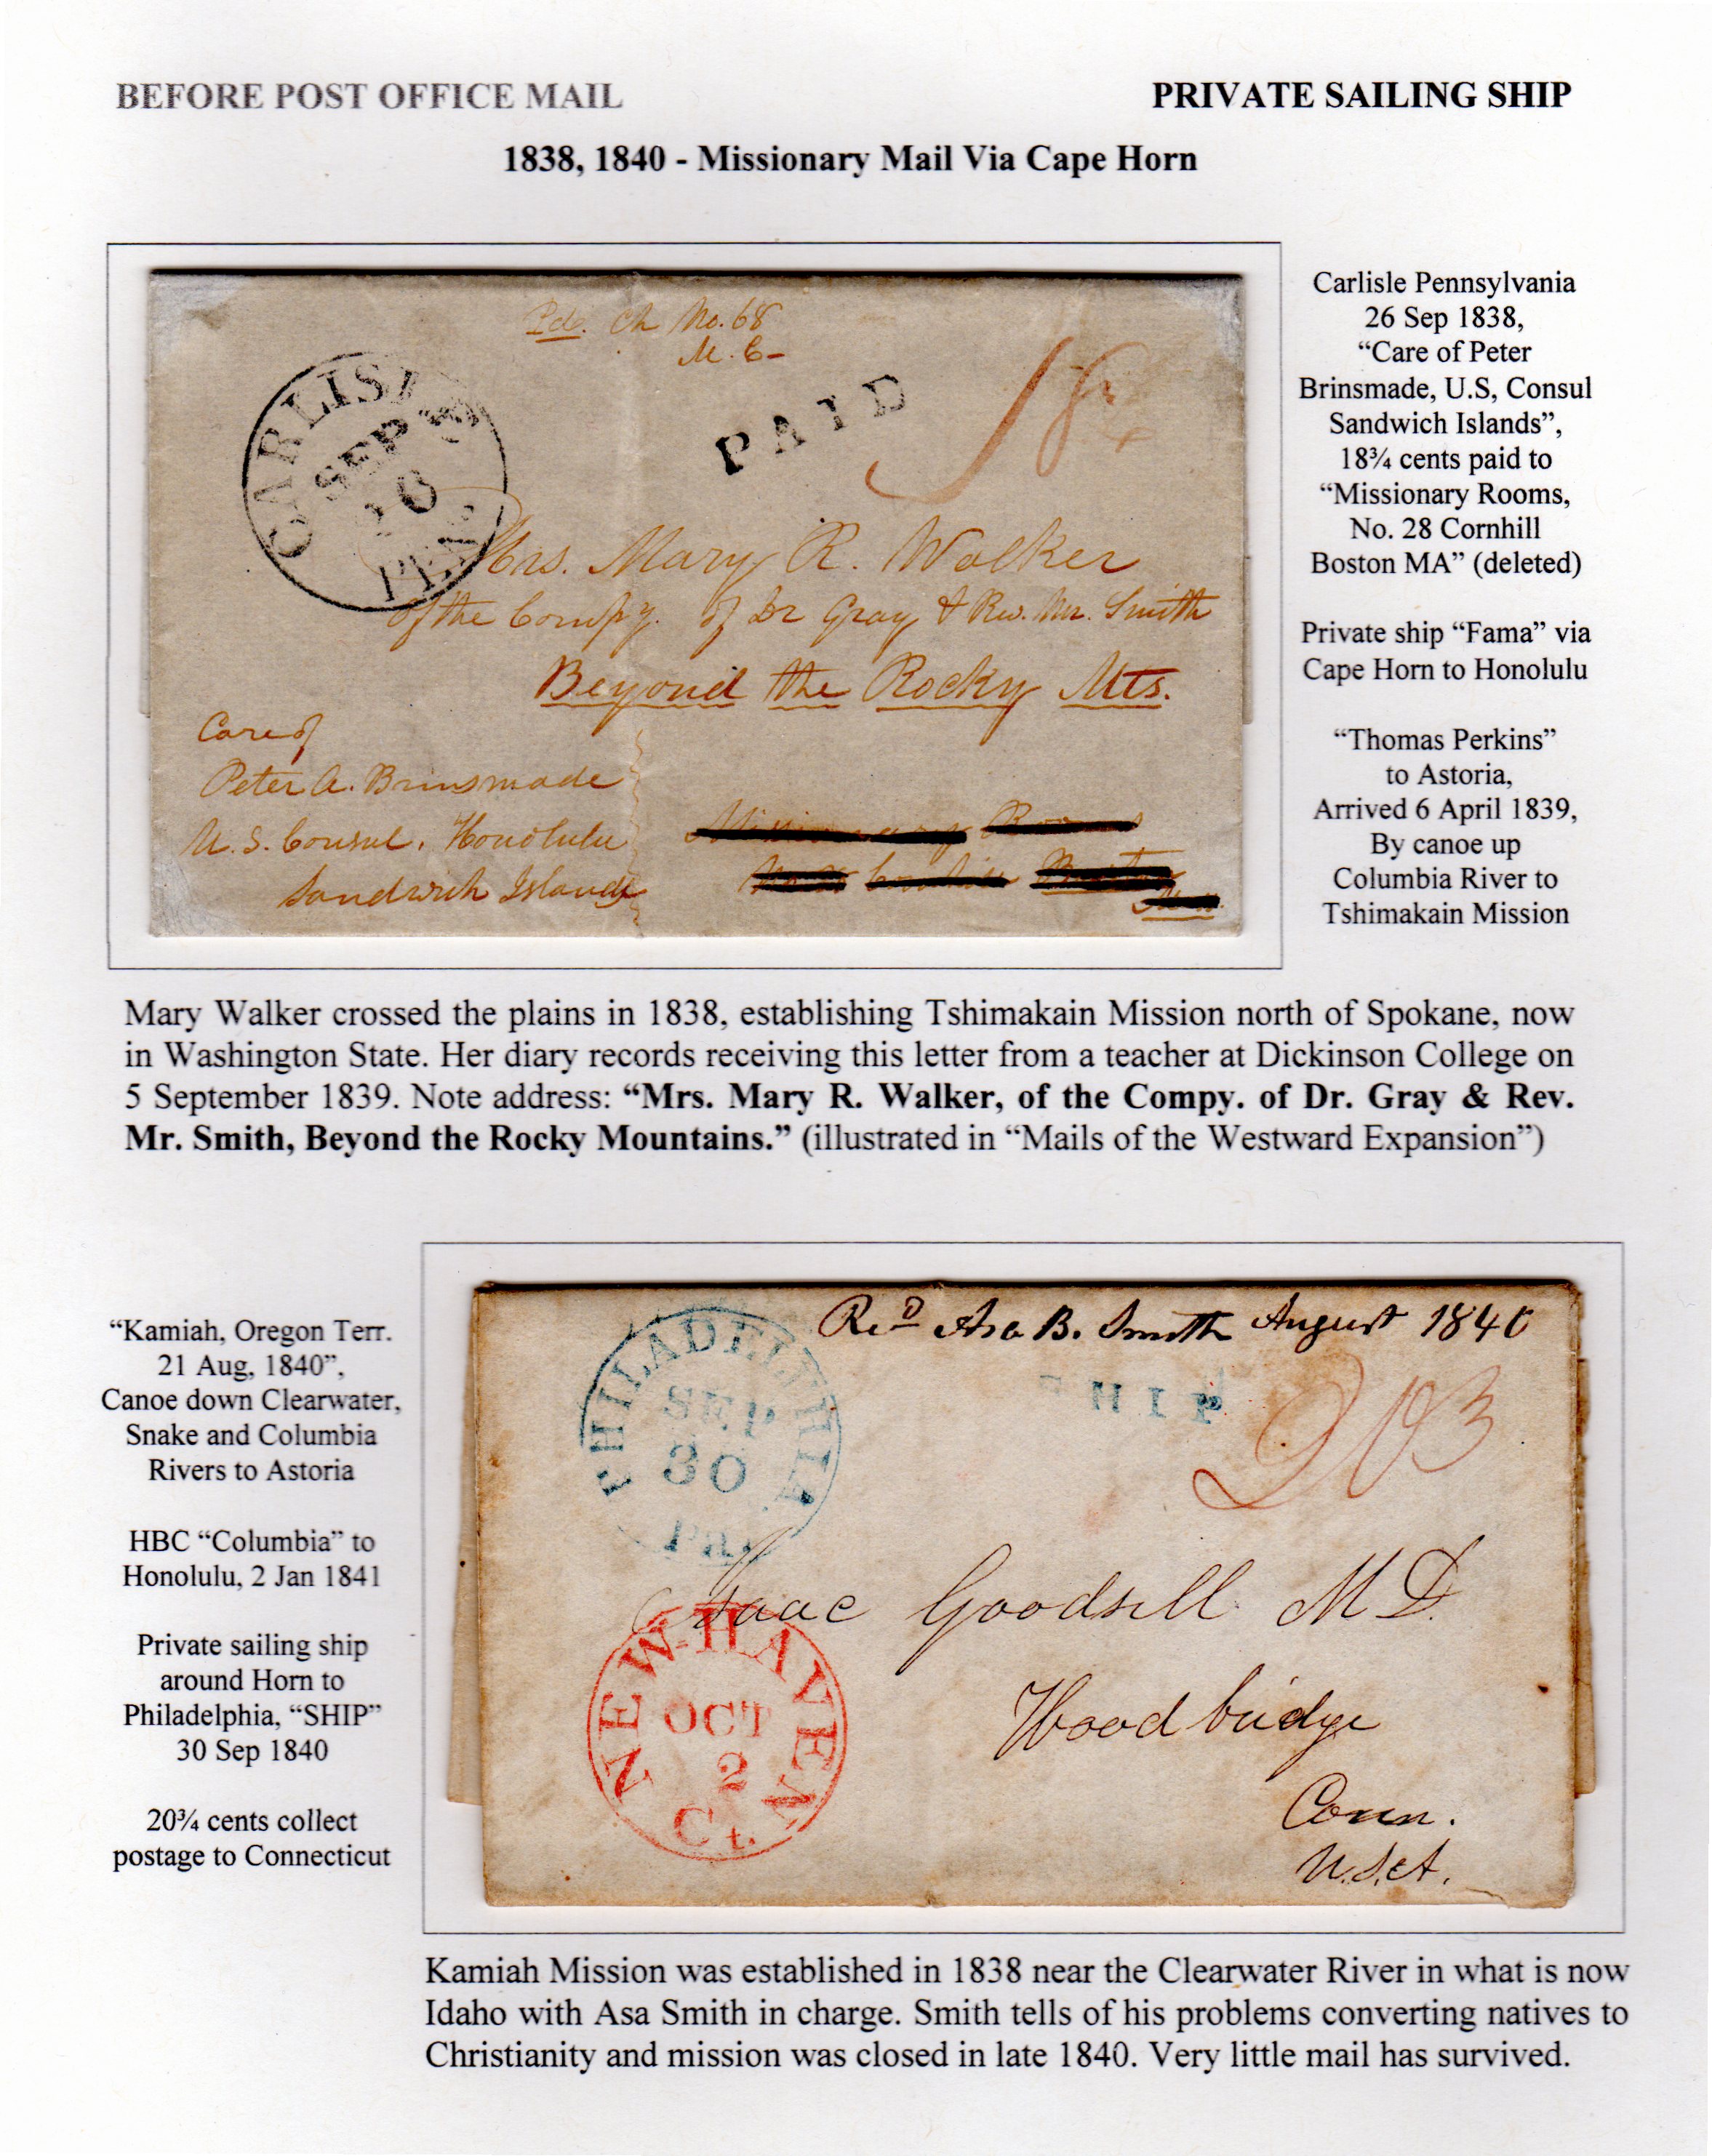 BEFORE POST OFFICE MAIL
PRIVATE SAILING SHIP
1838, 1840 - Missionary Mail Via Cape Horn
Pd. Ch No. 68
M. C-
CARLISLE
SEP
26
PEN
PAID
18¾
Mrs. Mary R. Walker
of the Compy. of Dr Gray & Rev. Mr. Smith
Beyond the Rocky Mts.
Care of
Peter A. Brinsmade
U.S. Consul, Honolulu
Sandwich Islands
Missionary Rooms
Carlisle Pennsylvania
26 Sep 1838,
“Care of Peter
Brinsmade, U.S, Consul
Sandwich Islands”,
18¾ cents paid to
“Missionary Rooms,
No. 28 Cornhill
Boston MA” (deleted)
Private ship “Fama” via
Cape Horn to Honolulu
“Thomas Perkins”
to Astoria,
Arrived 6 April 1839,
By canoe up
Columbia River to
Tshimakain Mission
Mary Walker crossed the plains in 1838, establishing Tshimakain Mission north of Spokane, now
in Washington State. Her diary records receiving this letter from a teacher at Dickinson College on
5 September 1839. Note address: “Mrs. Mary R. Walker, of the Compy. of Dr. Gray & Rev.
Mr. Smith, Beyond the Rocky Mountains.” (illustrated in “Mails of the Westward Expansion”)
“Kamiah, Oregon Terr.
21 Aug, 1840”,
Canoe down Clearwater,
Snake and Columbia
Rivers to Astoria
HBC “Columbia” to
Honolulu, 2 Jan 1841
Private sailing ship
around Horn to
Philadelphia, “SHIP”
30 Sep 1840
20¾ cents collect
postage to Connecticut
Asa B. Smith August 1840
PHILADELPHIA
SEP
30
Pa.
SHIP
Isaac Goodsell M D.
Woodbridge
Conn.
U.S.A.
NEW-HAVEN
OCT
2
Ct.
Kamiah Mission was established in 1838 near the Clearwater River in what is now
Idaho with Asa Smith in charge. Smith tells of his problems converting natives to
Christianity and mission was closed in late 1840. Very little mail has survived.